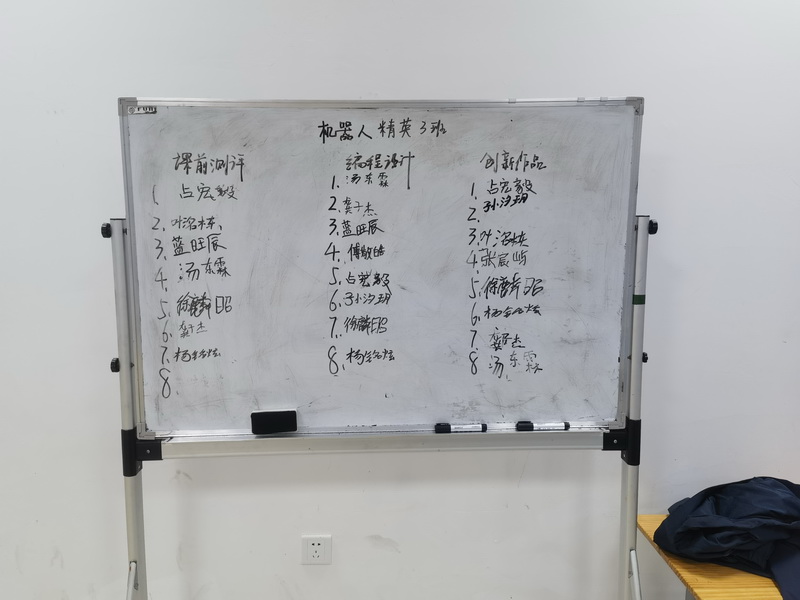 机器人精英3班
课前测评
1. 占宏毅
2. 叶洺栋
3. 蓝旺辰
4. 汤东霖
5. 徐麟昭
6. 龚子杰
7. 杨
8
编程设计
1. 汤东霖
2. 龚子杰
3. 蓝旺辰
4. 傅
5. 占宏毅
6. 孙汐玥
7. 徐麟昭
8. 杨
创新作品
1. 占宏毅
2. 孙汐玥
3. 叶洺栋
4. 张宸屿
5. 徐麟昭
6. 杨
7. 龚子杰
8 汤东霖